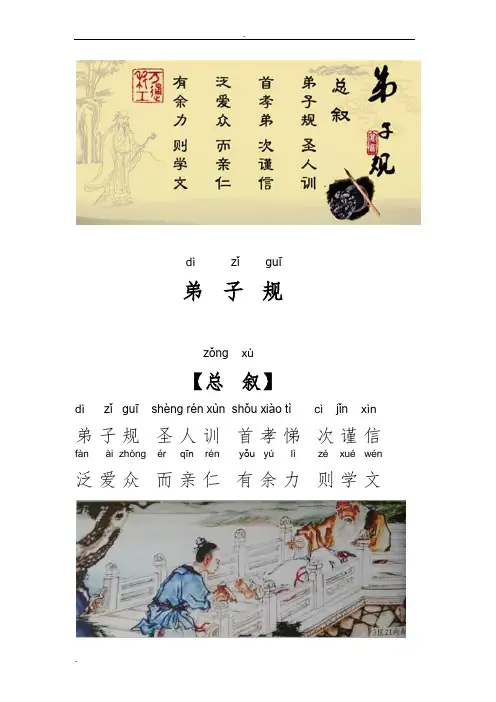 弟子规
总叙
弟子规 圣人训
首孝弟 次谨信
泛爱众 而亲仁
有余力 则学文
dì zǐ guī
弟 子 规
zǒng xù
【总 叙】
dì zǐ guī shèng rén xùn shǒu xiào tì cì jǐn xìn
弟 子 规 圣 人 训 首 孝 悌 次 谨 信
fàn ài zhòng ér qīn rén yǒu yú lì zé xué wén
泛 爱 众 而 亲 仁 有 余 力 则 学 文